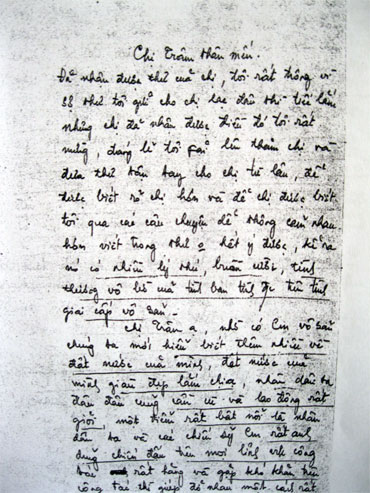 Chị Trâm thân mến.
Đã nhận được thư của chị, tôi rất
thư tôi gửi cho chị lạc đâu thì tiếc lắm
nhưng chị đã nhận được điều đó tôi rất
mừng, đáng lí tôi phải lên thăm chị và
đưa thư tận tay cho chị từ lâu, để
được biết rõ chị hơn và để chị được biết
tôi qua các câu chuyện dễ thông cảm nhau
hơn viết trong thư o hết ý được, kể ra
nó có nhiều lý thú, buồn cười, tình
thương vô bờ của tình bạn tình
giai cấp vô sản.
Chị Trâm ạ, nhờ có
chúng ta mới hiểu biết thêm nhiều về
đất nước của mình, đất nước của
mình giàu đẹp lắm chị ạ, nhân dân ta
đâu đâu cũng cần cù và lao động rất
giỏi, một điểm rất bật nổi là nhân
dân ta và các chiến sỹ rất anh
dũng chiến đấu
tác rất hăng và gặp khó khăn
công tác thì giúp đỡ nhau một cách rất